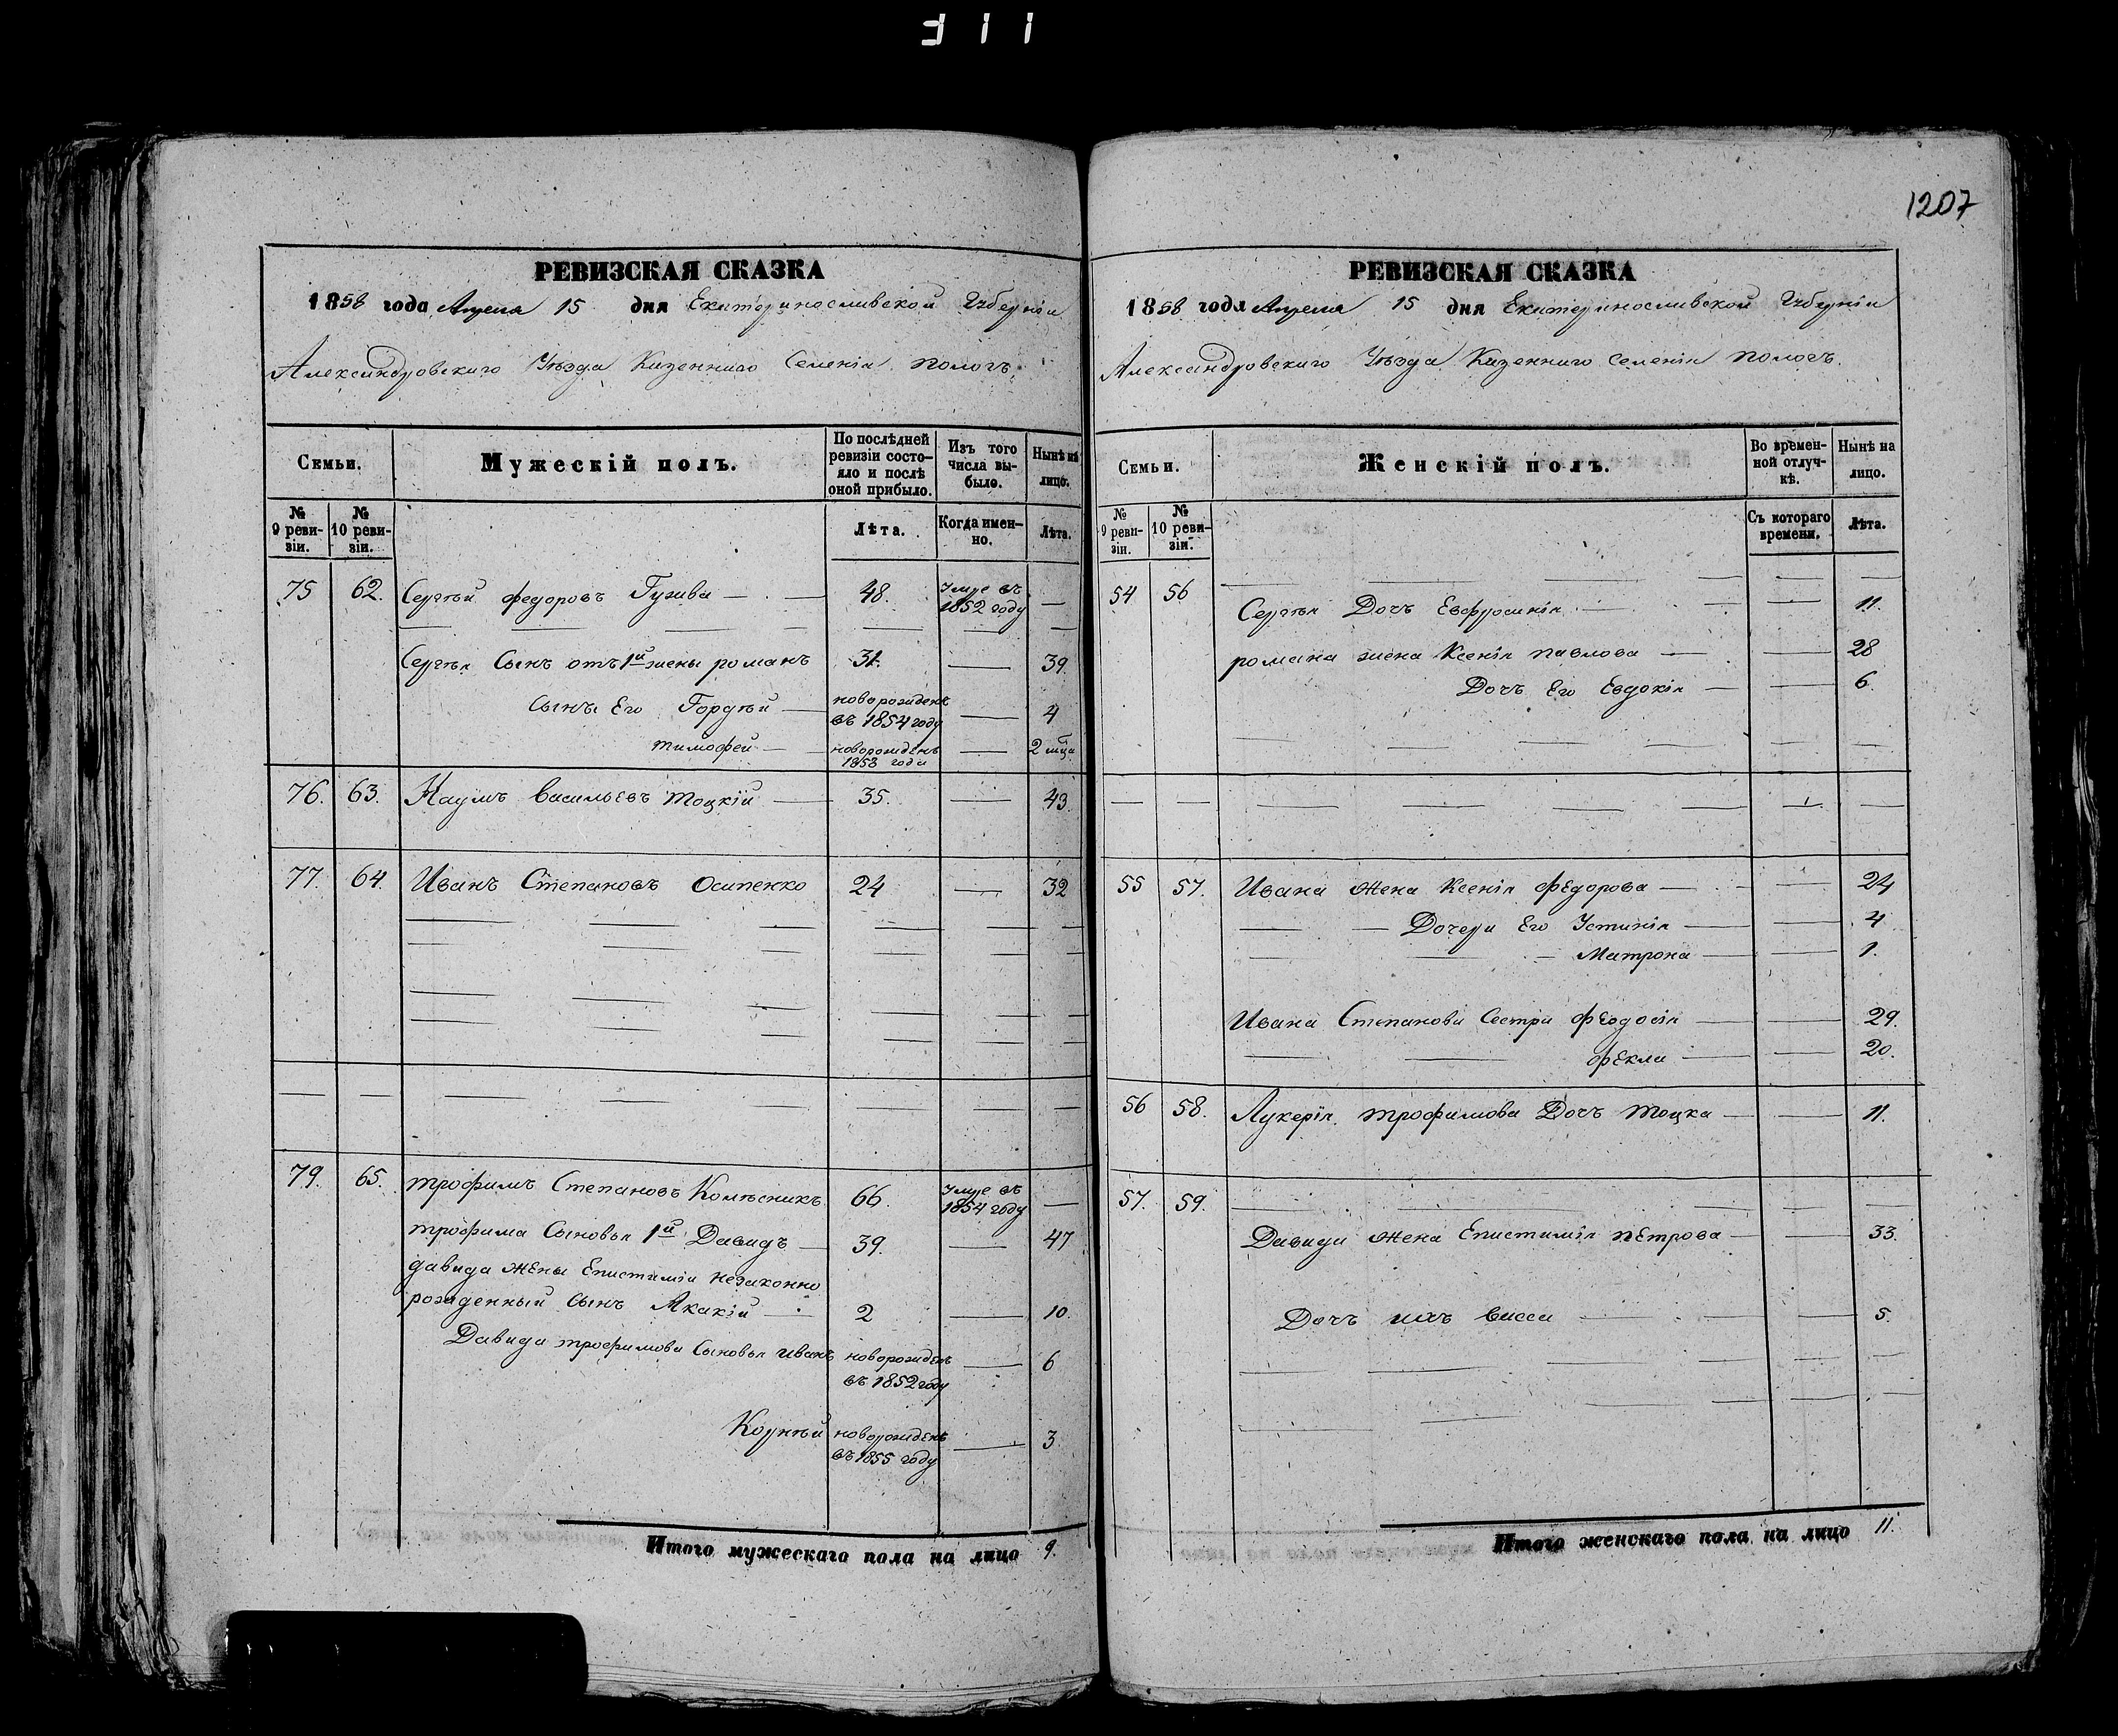 311
1207
РЕВИЗСКАЯ СКАЗКА
1858 года Апреля 15 дня Екатеринославской Губерніи
Александровскаго Уѣзда Казеннаго Селенія пологъ.
Семьи. Мужескій полъ. По послѣдней ревизіи состояло и послѣ оной прибыло. Изъ того числа выбыло. Нынѣ на лицо.
№ 9 ревизіи. № 10 ревизіи. Лѣта. Когда именно. Лѣта.
75 62. Сергѣй федоровъ Гузива 48. Умре въ 1852 году —
Сергѣя Сынъ отъ 1й жены романъ 31. — 39.
Сыны Его Гордѣй новорожденъ въ 1854 году — 4
тимофей новорожденъ 1858 года — 2 мца
76. 63. Наумъ васильевъ тоцкій 35. — 43.
77. 64. Иванъ Степановъ Осипенко 24 — 32
79. 65. трофимъ Степановъ Колѣсникъ 66. Умре въ 1854 году —
трофима Сыновья 1й Давидъ — 39. — 47
давида жены Епистиміи незаконно
рожденный сынъ Акакій — 2 — 10.
Давида трофимова Сыновья иванъ новорожденъ въ 1852 году — 6
Корнѣй новорожденъ въ 1855 году — 3
Итого мужескаго пола на лицо 9.
РЕВИЗСКАЯ СКАЗКА
1858 года Апреля 15 дня Екатеринославской Губерніи
Александровскаго Уѣзда Казеннаго Селенія пологъ.
Семьи. Женскій полъ. Во временной отлучкѣ. Нынѣ на лицо.
№ 9 ревизіи. № 10 ревизіи. Съ котораго времени. Лѣта.
54 56
Сергѣя Дочъ Евфросинія — 11.
романа жена Ксенія павлова — 28
Дочъ Его Евдокія — 6.
55 57. Ивана жена Ксенія федорова — 24
Дочери Его Устинія — 4
Матрона — 1.
Ивана Степанова Сестра феодосія — 29.
фекла — 20.
56 58. Лукерія трофимова Дочъ тоцка — 11.
57. 59.
Давида жена Епистимія петрова — 33.
Дочъ ихъ васса — 5.
Итого женскаго пола на лицо 11.